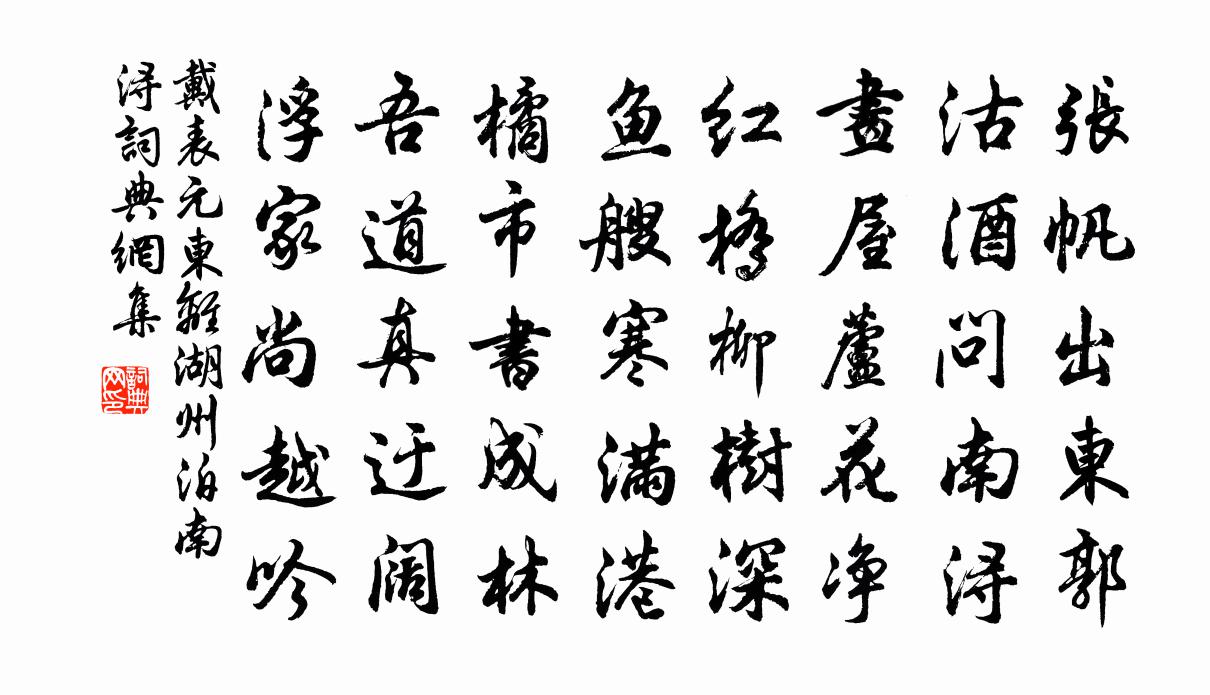 張帆出東郭
沽酒問南浔
畫屋蘆花净
红橋柳樹深
魚艘寒滿港
橘市書成林
吾道真迂阔
浮家尚越吟
戴表元東離湖州泊南
浔詞典網集
詞典网印